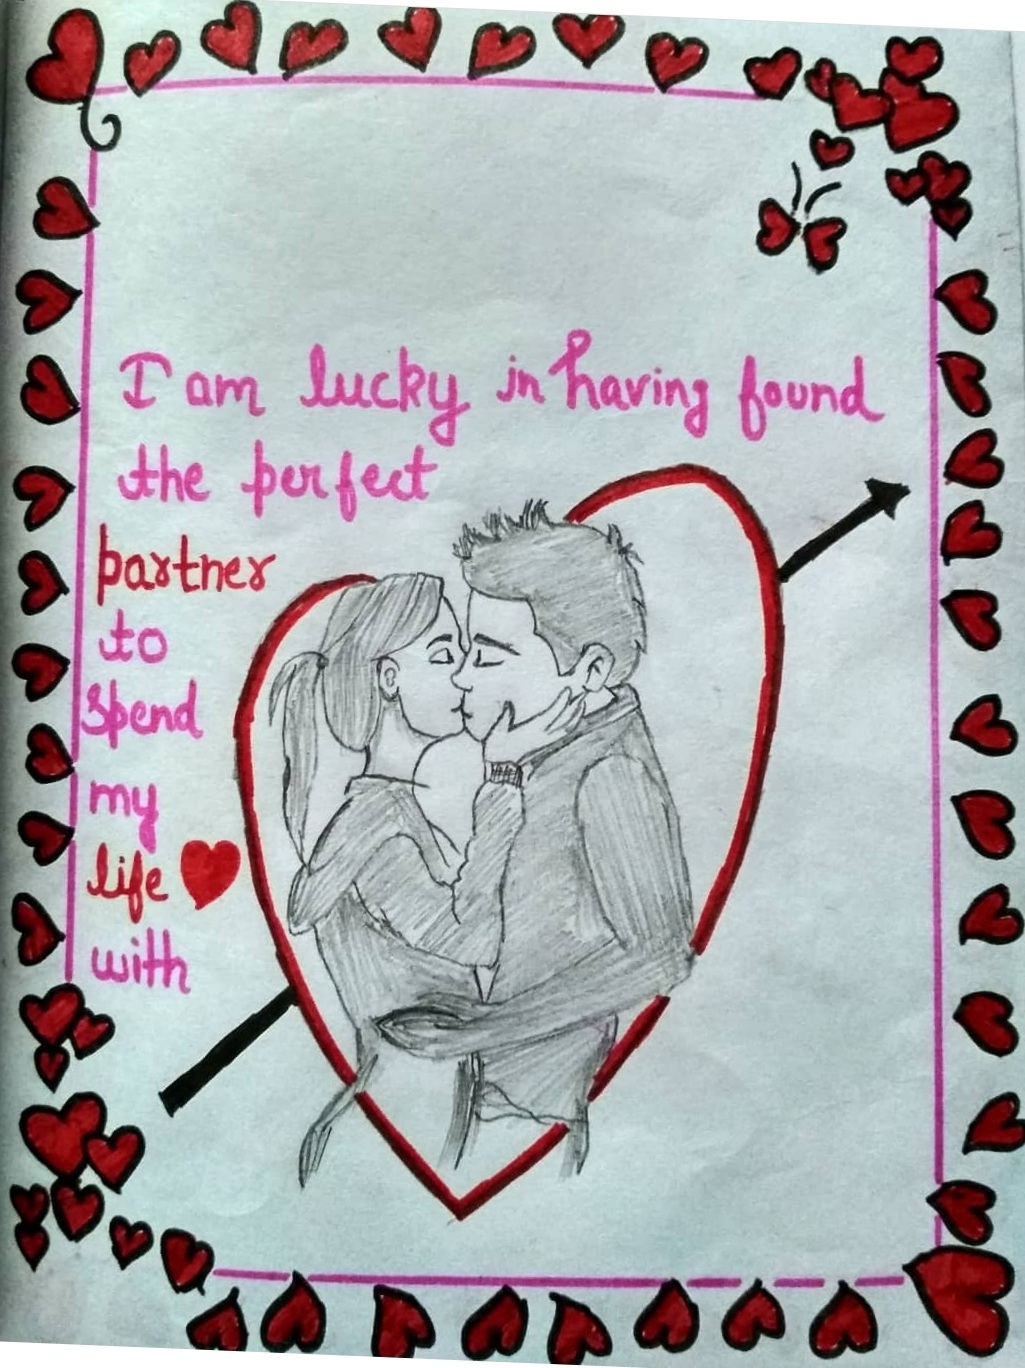 I am lucky in having found
the perfect
partner
to
spend
my
life
with